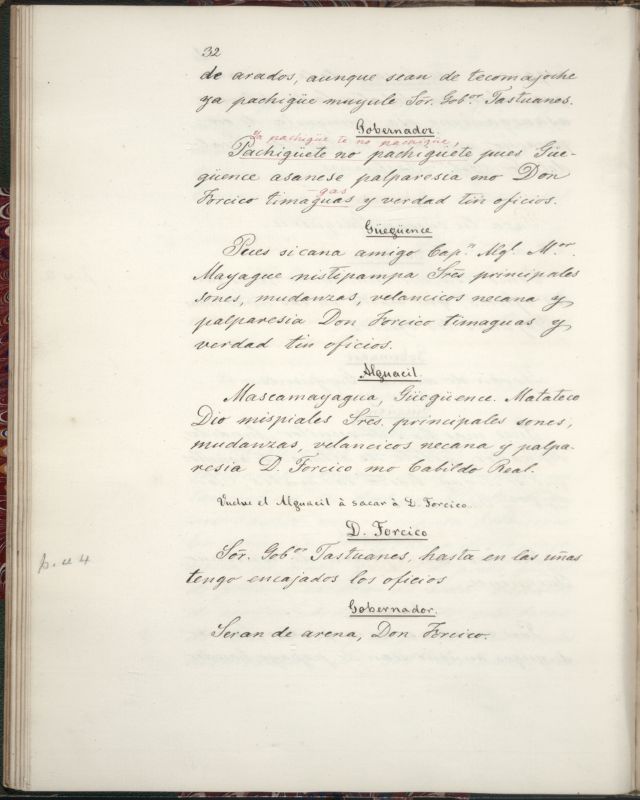 32
de arados, aunque sean de tecomajoche
ya pachigüe muyule Sõr. Gobor. Tastuanes.
Gobernador
Ya pachigüe te no pachigüe,
Pachigüete no pachigüete pues Güe-
güence asanese palparesia mo Don
-gas
Forcico timaguas y verdad tin oficios.
Güegüence
Pues sicana amigo Capn. Algl. Mor.
Mayague nistipampa Sres principales
sones, mudanzas, velancicos necana y
palparesia Don Forcico timaguas y
verdad tin oficios.
Alguacil.
Mascamayagua, Güegüence. Matateco
Dio mispiales Sres. principales sones,
mudanzas, velancicos necana y palpa-
resia D. Forcico mo Cabildo Real.
Vuelve el Alguacil à sacar à D. Forcico.
D. Forcico
Sõr. Gobor Tastuanes, hasta en las uñas
tengo encajados los oficios
Gobernador.
Seran de arena, Don Forcico.